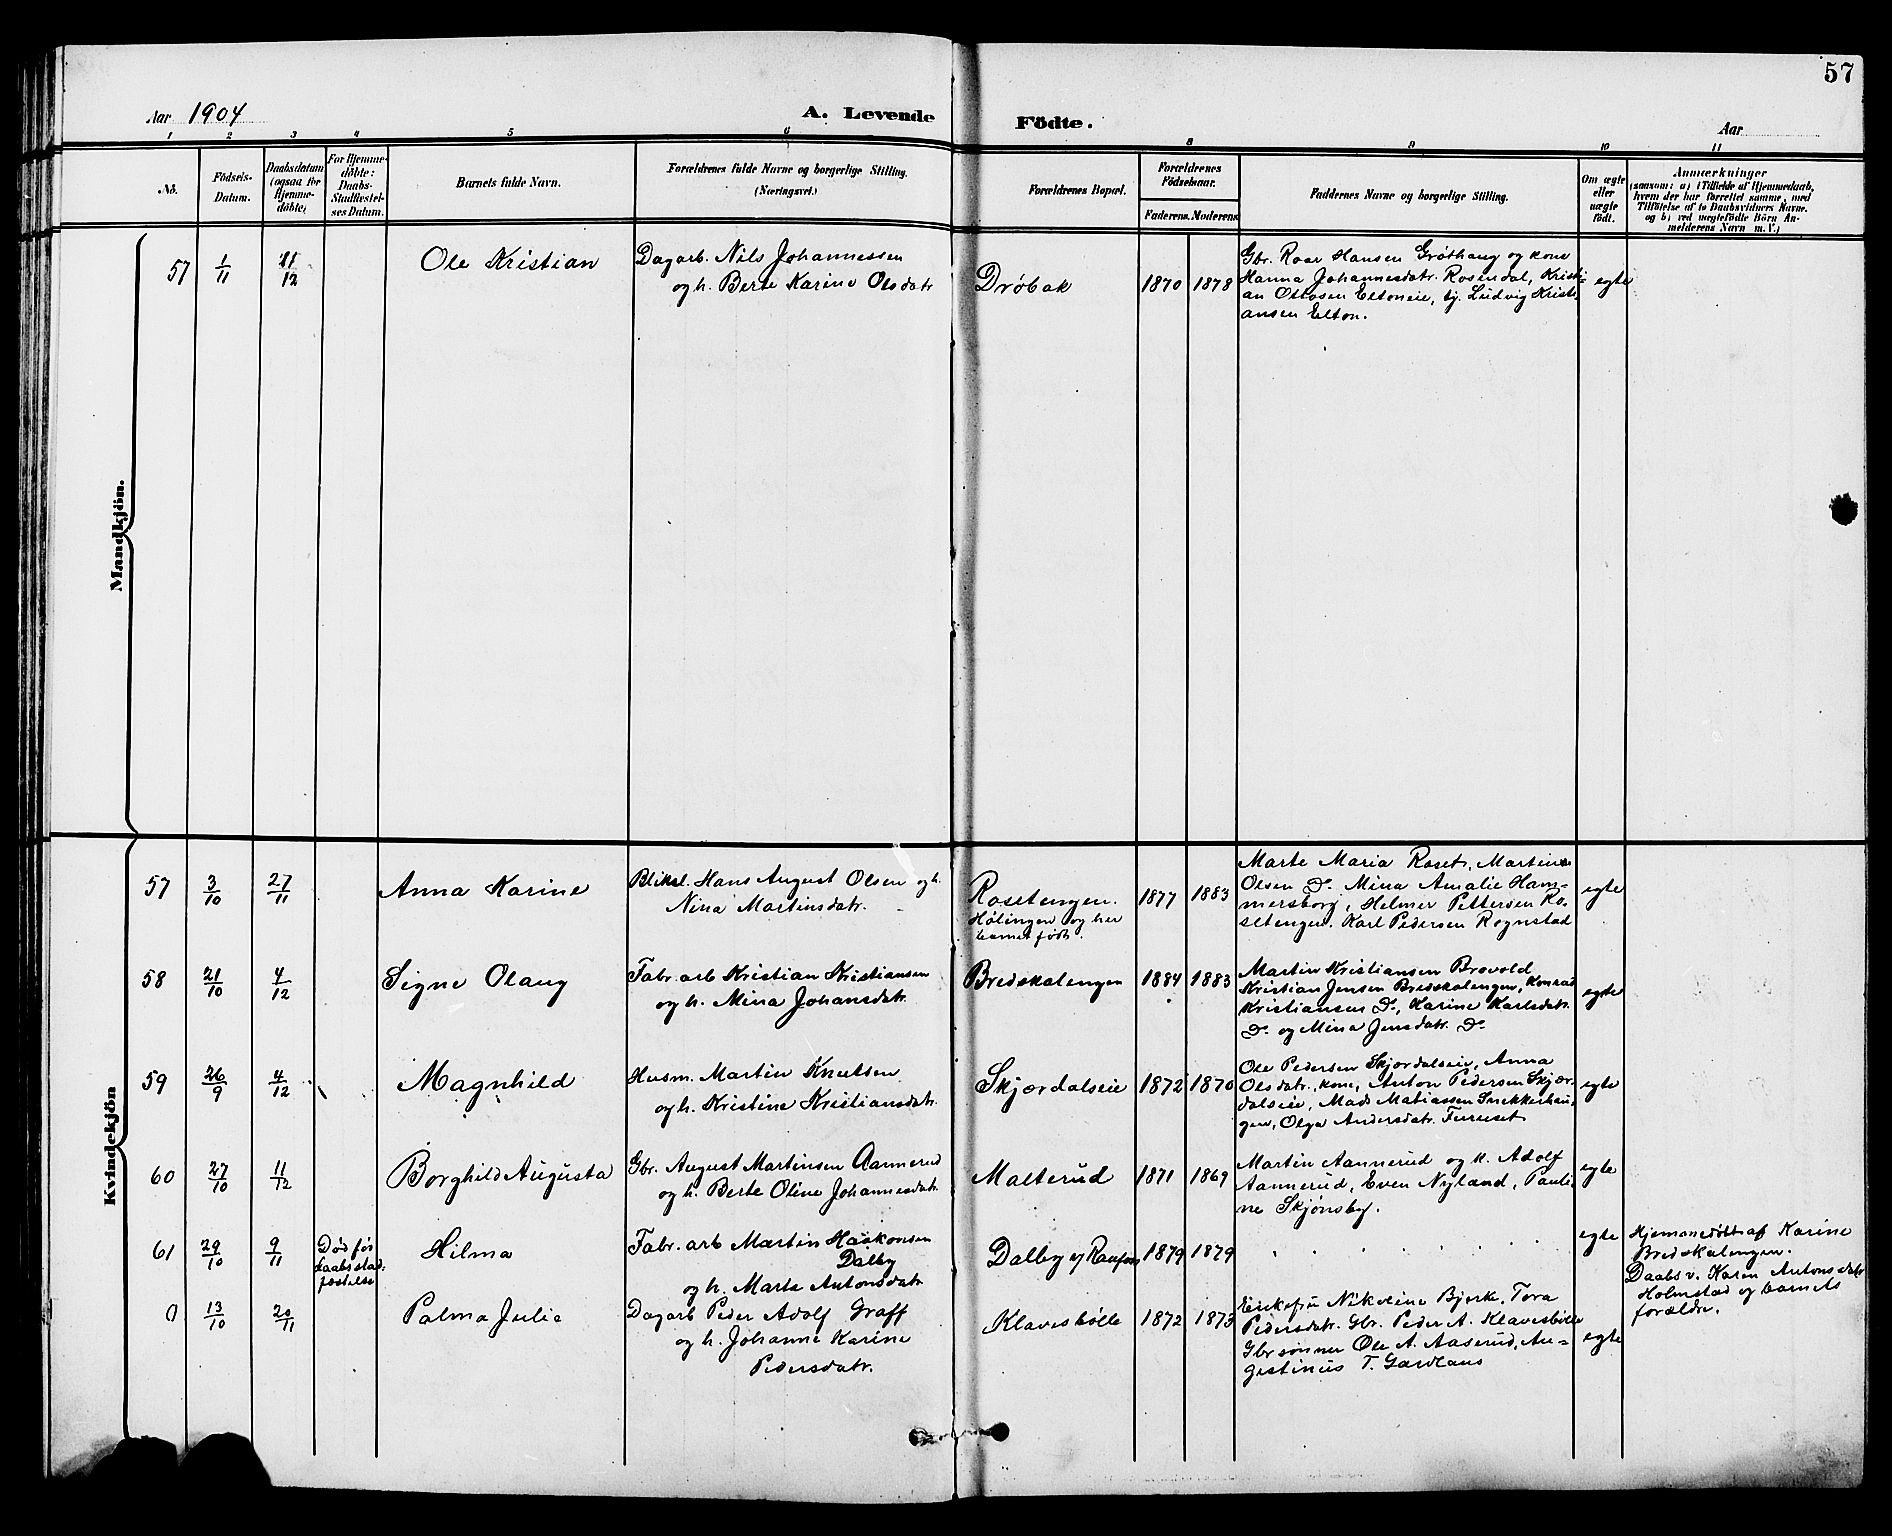 57
Aar 1904
A. Levende Födte.
Aar
1 2 3 4 5 6 8 9 10 11
No.
Födsels-
Datum.
Daabsdatum
(ogsaa for
Hjemme-
döbte)
For Hjemme-
döbte:
Daabs-
Stadfæstel-
ses Datum.
Barnets fulde Navn.
Forældrenes fulde Navne og borgerlige Stilling.
(Næringsvei.)
Forældrenes Bopæl.
Forældrenes
Födselsaar.
Faderens. Moderens.
Faddernes Navne og borgerlige Stilling.
Om ægte
eller
uægte
födt.
Anmærkninger
(saasom: a) i Tilfælde af Hjemmedaab,
hvem der har forrettet samme, med
Tilföielse af to Daabsvidners Navne.
og b) ved uægtefödte Börn An-
melderens Navn m. V.)
Mandkjön.
57
1/11
11/12
Ole Kristian
Dagarb. Nils Johannessen
og h. Berte Karine Olsdatr
Dröbak
1870 1878
Gbr. Roar Hansen Gröthaug og kone
Hanna Johannesdatr. Rosendal, Kristi-
an Ottosen Eltoneie, tj. Ludvig Kristi-
ansen Elton.
egte
Kvindekjön
57
3/10
27/11
Anna Karine
Bliksl. Hans August Olsen og h.
Nina Martinsdatr.
Rosetengen.
Hölingen og her
barnet födt.
1877 1883
Marte Maria Roset, Martinus
Olsen Do. Mina Amalie Ham-
mersborg, Helmer Pettersen Ro-
setengen. Karl Pedersen Rognstad
egte
58
21/10
4/12
Signe Olaug
Fabr. arb Kristian Kristiansen
og h. Mina Johansdatr.
Bredskalengen
1884 1883
Martin Kristiansen Brovold
Kristian Jensen Bredskalengen, Konrad
Kristiansen Do., Karine Karlsdatr.
Do. og Mina Jensdatr. Do.
egte
59
26/9
4/12
Magnhild
Husm. Martin Knutsen
og h. Kristine Kristiansdatr.
Skjærdalseie
1872 1870
Ole Pedersen Skjærdalseie, Anna
Olsdatr., kone, Anton Pedersen Skjær-
dalseie, Mads Matiassen Snekkerhau-
gen, Olga Andersdatr. Furuset
egte
60
27/10
11/12
Borghild Augusta
Gbr. August Martinsen Aannerud
og h. Berte Oline Johannesdatr.
Malterud
1871 1869
Martin Aannerud og h. Adolf
Aannerud, Even Nyland, Pauli-
ne Skjönsby.
egte
61
29/10
9/11
Död för
daabsstad-
fæstelse
Hilma
Fabr. arb Martin Haakonsen
Dalby
og h. Marte Antonsdatr
Dalby v/ Raufoss
1879 1879
egte
Hjemmedöbt af Karine
Bredskalengen.
Daabs v. Karen Antonsdatr
Holmstad og barnets
forældre.
0
13/10
20/11
Palma Julie
Dagarb Peder Adolf Graff
og h. Johanne Karine
Pedersdatr.
Klavesbölle
1872 1873
Enkefru Nikoline Bjerk. Tora
Pedersdatr. Gbr. Peder A. Klavesbölle
Gbr sönner Ole A. Aaserud, Au-
gestinus T.
egte